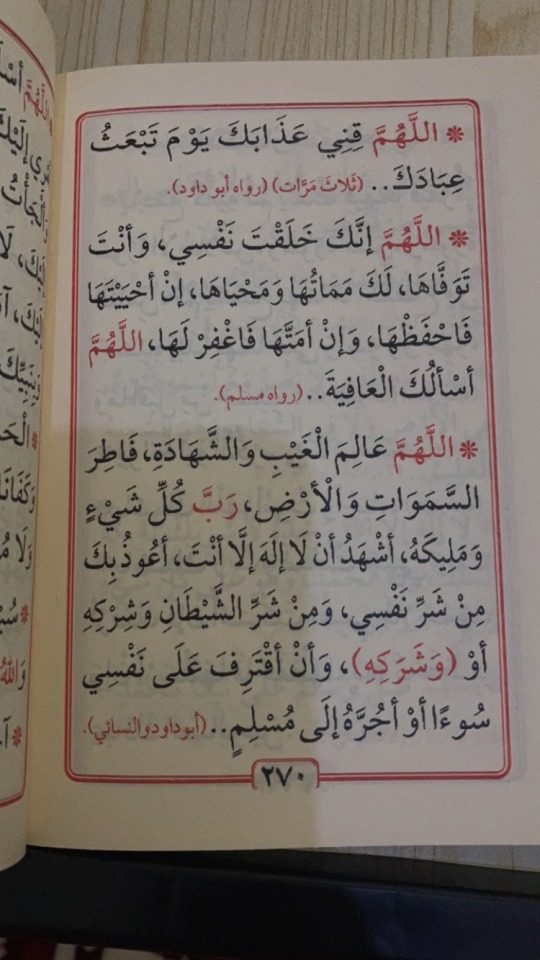 * اللَّهُمَّ قِنِي عَذَابَكَ يَوْمَ تَبْعَثُ
عِبَادَكَ.. (ثَلاثَ مَرَّات) (رواه أبو داود).
* اللَّهُمَّ إِنَّكَ خَلَقْتَ نَفْسِي، وَأَنْتَ
تَوَفَّاهَا، لَكَ مَمَاتُهَا وَمَحْيَاهَا، إِنْ أَحْيَيْتَهَا
فَاحْفَظْهَا، وَإِنْ أَمَتَّهَا فَاغْفِرْ لَهَا، اللَّهُمَّ
أَسْأَلُكَ الْعَافِيَةَ.. (رواه مسلم).
* اللَّهُمَّ عَالِمَ الْغَيْبِ وَالشَّهَادَةِ، فَاطِرَ
السَّمَوَاتِ وَالْأَرْضِ، رَبَّ كُلِّ شَيْءٍ
وَمَلِيكَهُ، أَشْهَدُ أَنْ لَا إِلَهَ إِلَّا أَنْتَ، أَعُوذُ بِكَ
مِنْ شَرِّ نَفْسِي، وَمِنْ شَرِّ الشَّيْطَانِ وَشِرْكِهِ
أَوْ (وَشَرَكِهِ)، وَأَنْ أَقْتَرِفَ عَلَى نَفْسِي
سُوءًا أَوْ أَجُرَّهُ إِلَى مُسْلِمٍ.. (أبو داود والنسائي).
٢٧٠